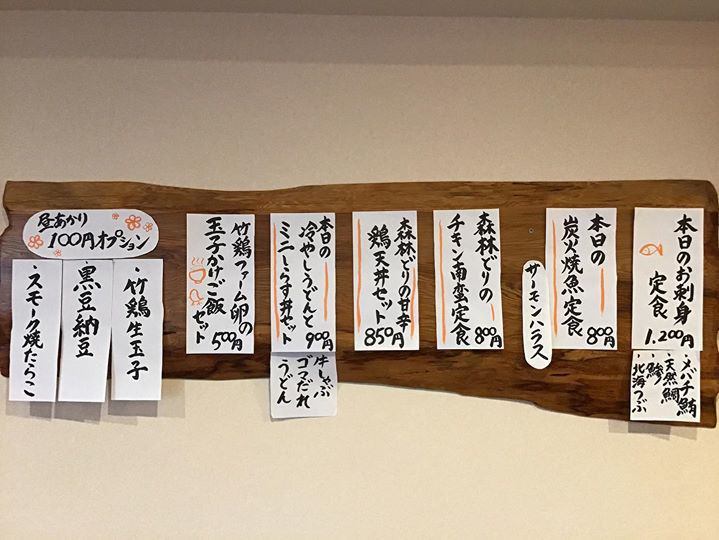 本日のお刺身
定食
1,200円
・メバチ鮪
・天然鯛
・鯵
・北海つぶ
本日の
炭火焼魚定食
800円
サーモンハラス
森林どりの
チキン南蛮定食
800円
森林どりの甘辛
鶏天丼セット
850円
本日の
冷やしうどんと
ミニしらす丼セット
900円
牛しゃぶ
ゴマだれ
うどん
竹鶏ファーム卵の
玉子かけご飯
セット
500円
昼あかり
100円オプション
・竹鶏生玉子
・黒豆納豆
・スモーク焼たらこ